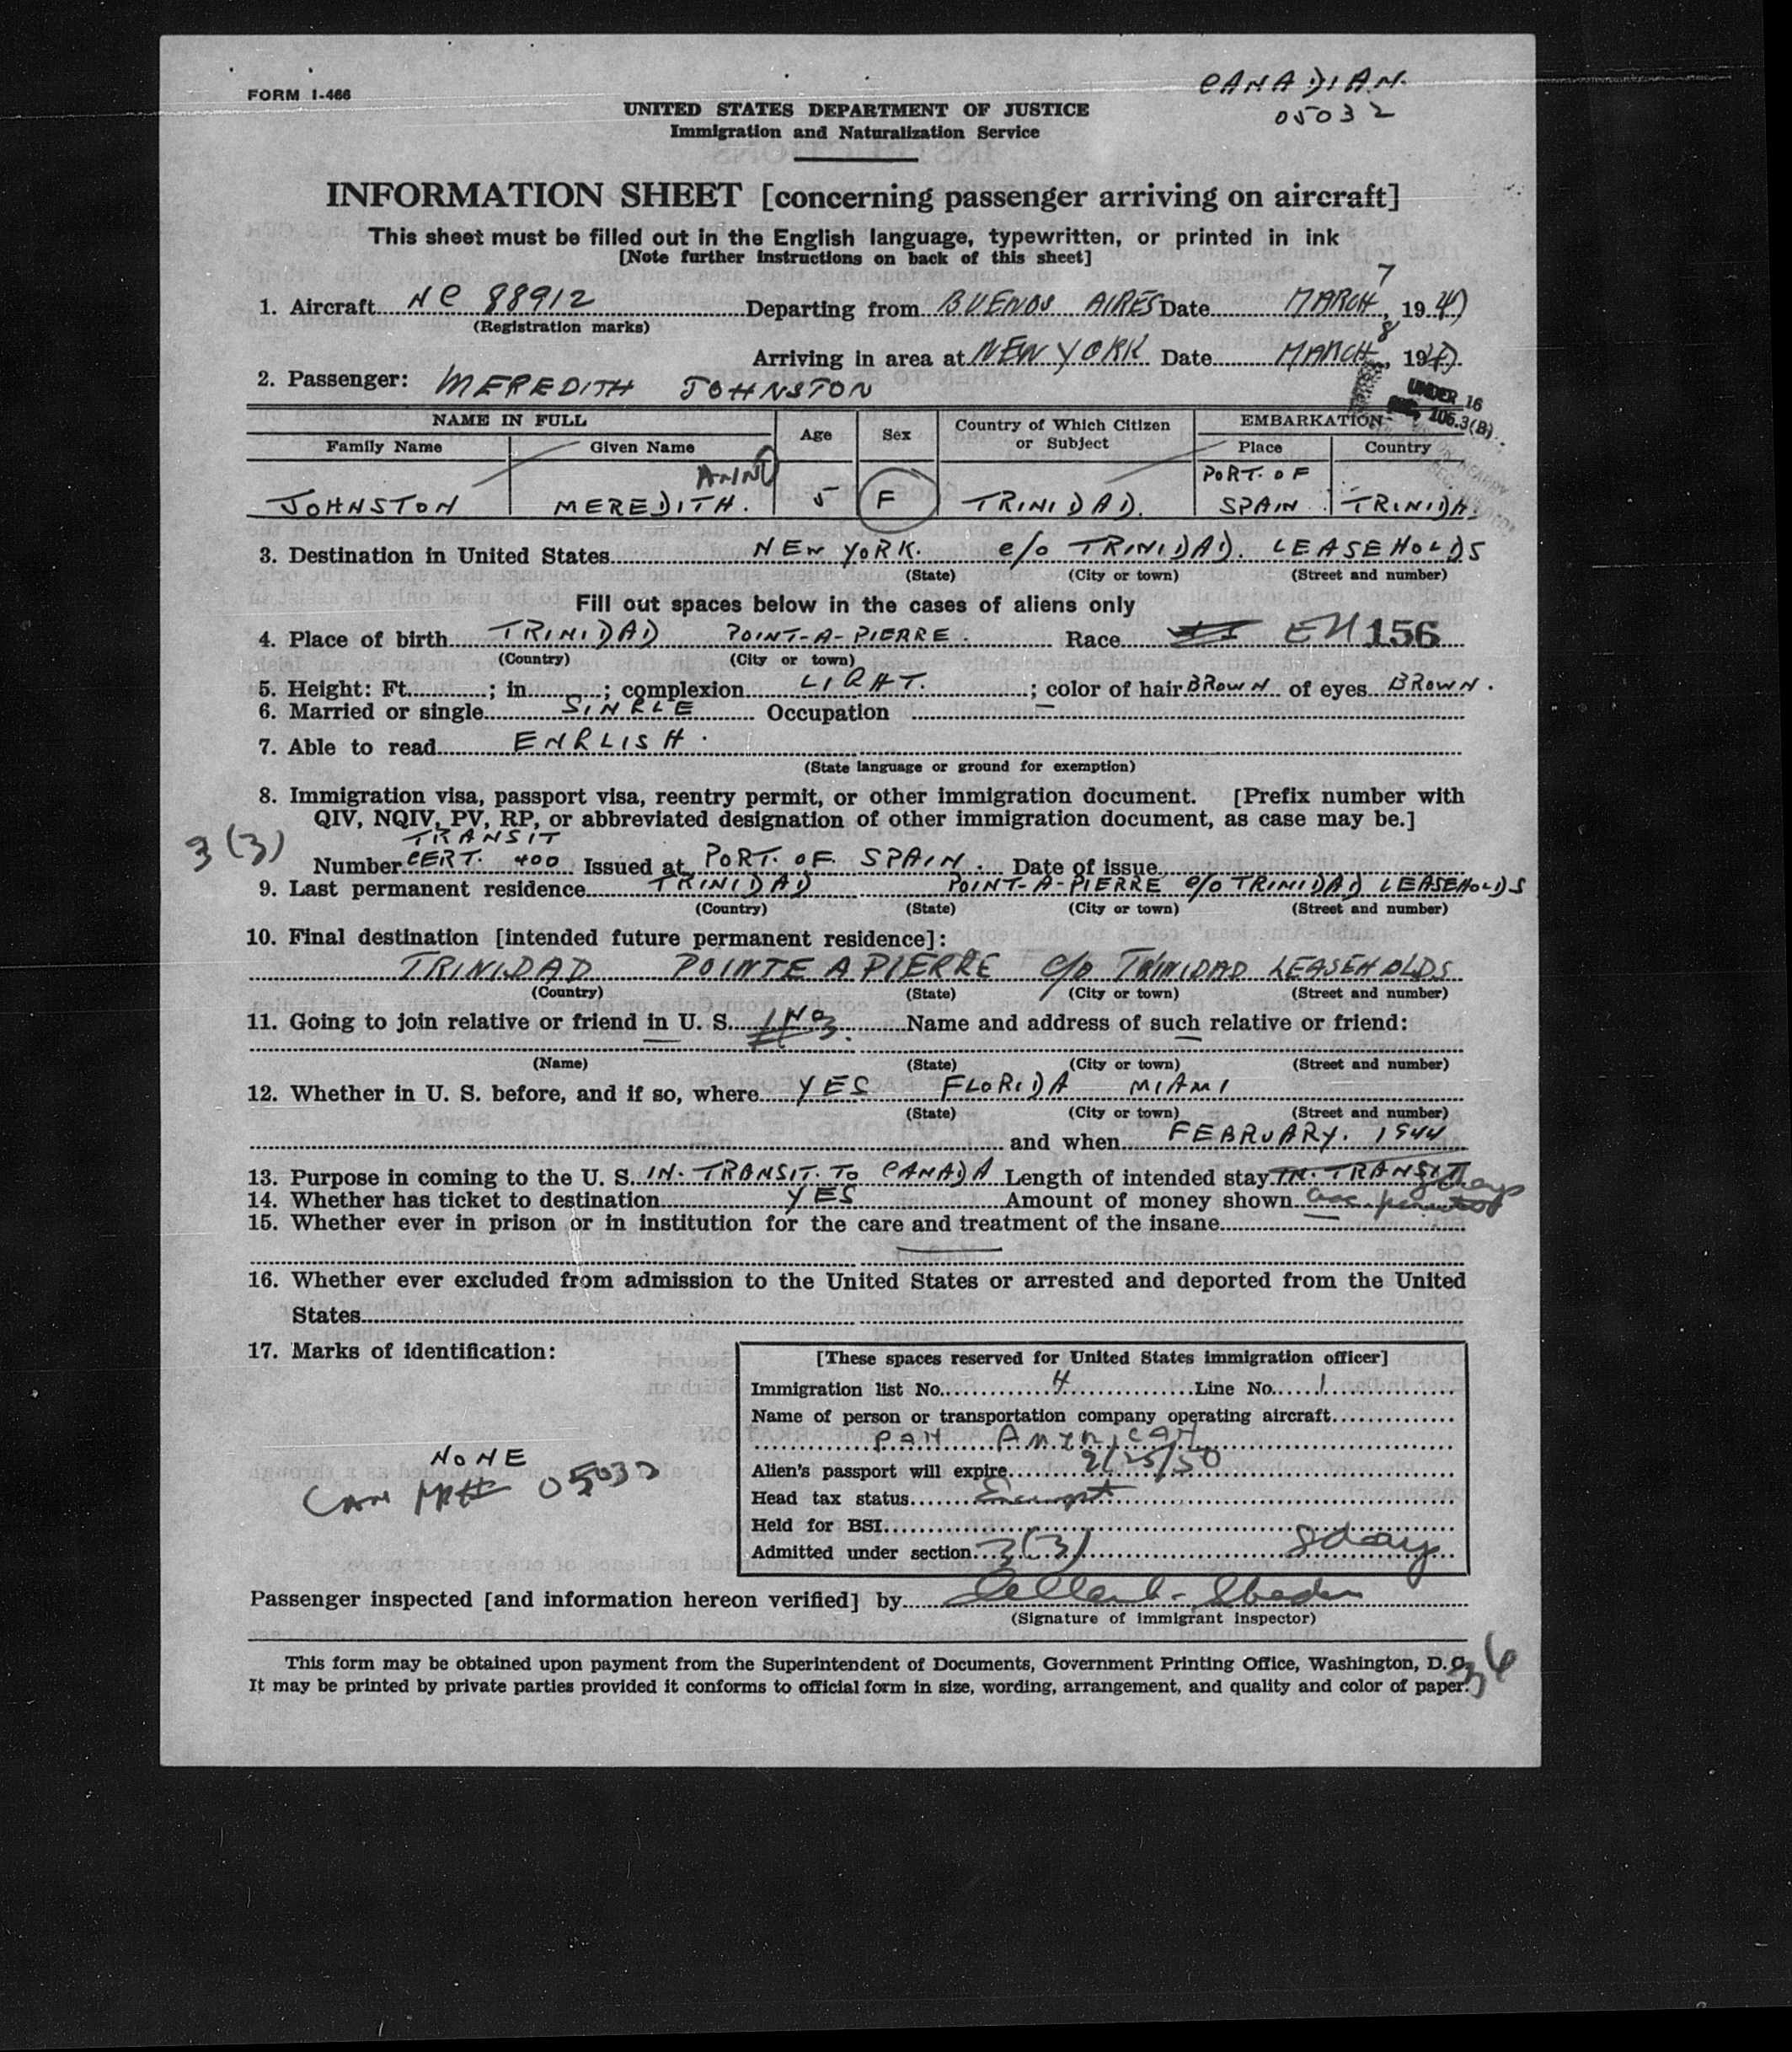 CANADIAN.
FORM I-466
05032
UNITED STATES DEPARTMENT OF JUSTICE
Immigration and Naturalization Service
INFORMATION SHEET [concerning passenger arriving on aircraft]
This sheet must be filled out in the English language, typewritten, or printed in ink
[Note further instructions on back of this sheet]
1. Aircraft NC 88912 Departing from BUENOS AIRES Date MARCH 7, 1947
(Registration marks)
Arriving in area at NEW YORK Date MARCH 8, 1947
2. Passenger: MEREDITH JOHNSTON
UNDER 16
106.3(B)
NAME IN FULL Age Sex Country of Which Citizen or Subject EMBARKATION
Family Name Given Name Place Country
JOHNSTON MEREDITH. ANN 5 F TRINIDAD. PORT. OF SPAIN TRINIDA.
3. Destination in United States NEW YORK. c/o TRINIDAD. LEASEHOLDS
(State) (City or town) (Street and number)
Fill out spaces below in the cases of aliens only
4. Place of birth TRINIDAD POINT-A-PIERRE. Race EN 156
(Country) (City or town)
5. Height: Ft. ; in. ; complexion LIGHT. ; color of hair BROWN of eyes BROWN.
6. Married or single SINGLE Occupation
7. Able to read ENGLISH.
(State language or ground for exemption)
8. Immigration visa, passport visa, reentry permit, or other immigration document. [Prefix number with
QIV, NQIV, PV, RP, or abbreviated designation of other immigration document, as case may be.]
3(3) TRANSIT
Number CERT. 400 Issued at PORT. OF. SPAIN. Date of issue
9. Last permanent residence TRINIDAD POINT-A-PIERRE c/o TRINIDAD LEASEHOLDS
(Country) (State) (City or town) (Street and number)
10. Final destination [intended future permanent residence]:
TRINIDAD POINTE A PIERRE c/o TRINIDAD LEASEHOLDS
(Country) (State) (City or town) (Street and number)
11. Going to join relative or friend in U. S. NO Name and address of such relative or friend:
(Name) (State) (City or town) (Street and number)
12. Whether in U. S. before, and if so, where YES FLORIDA MIAMI
(State) (City or town) (Street and number)
and when FEBRUARY. 1944
13. Purpose in coming to the U. S. IN. TRANSIT. TO CANADA Length of intended stay IN. TRANSIT
14. Whether has ticket to destination YES Amount of money shown
15. Whether ever in prison or in institution for the care and treatment of the insane
16. Whether ever excluded from admission to the United States or arrested and deported from the United
States
17. Marks of identification:
NONE
CAN 05032
[These spaces reserved for United States immigration officer]
Immigration list No. 4 Line No. 1
Name of person or transportation company operating aircraft
PAN AMERICAN
Alien's passport will expire 2/25/50
Head tax status Exempt
Held for BSI
Admitted under section 3(3) 8 days
Passenger inspected [and information hereon verified] by
(Signature of immigrant inspector)
This form may be obtained upon payment from the Superintendent of Documents, Government Printing Office, Washington, D. C.
It may be printed by private parties provided it conforms to official form in size, wording, arrangement, and quality and color of paper.
36